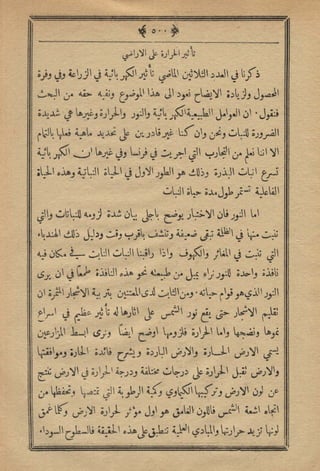 ﴿ ٥٠٠ ﴾
تأثير الحرارة على الاراضي
ذكرنا في العدد الثلاثين الماضي تأثير الكهربائية في الزراعة وفي وفرة
المحصول ولزيادة الايضاح نعود الى هذا الموضوع ونفيه حقه من البحث
فنقول · ان العوامل الطبيعية الكهربائية والنور والحرارة وغيرها هي شديدة
الضرورة للنبات ونحن وان كنا غير قادرين على تحديد ماهية فعلها بالتمام
الا اننا نعلم من التجارب التي اجريت في فرنسا وفي غيرها ان الكهربائية
تسرع انبات البذرة وذلك هو الطور الاول في الحياة النباتية وهذه الحياة
الفاعلية تستمر طول مدة حياة النبات
اما النور فان الاختبار يوضح باجلى بيان شدة لزومه للنباتات والتي
تنبت منها في الظلمة تبقى ضعيفة وتنشف باقرب وقت ودليل ذلك الهندباء
التي تنبت في المغائر والكهوف واذا راقبنا النبات النابت في مكان فيه
نافذة واحدة للنور نراه يميل من طبيعته نحو هذه النافذة طمعًا في ان يرى
النور الذي هو قوام حياته · ومن الثابت لدى المعتنين بتربية الاشجار المثمرة ان
تقليم الاشجار حتى يقع نور الشمس على اثارها له تأثير عظيم في اسراع
نموها ونضجها واما الحرارة فلزومها اوضح ايضًا ونرى ابسط المزارعين
يسمي الارض الحارة والارض الباردة ويشرح فائدة الحارة وموافقتها
والارض تقبل الحرارة على درجات مختلفة ودرجة الحرارة في الارض تنتج
عن لون الارض وتركيبها الكيماوي وكمية الرطوبة التي تمتصها وتحفظها من
اتجاه اشعة الشمس فاللون الغامق هو اول مؤثر لحرارة الارض وكلما غمق
لونها تزيد حرارتها والمبادي العلمية تنطبق على هذه الحقيقة فالسطوح السوداء